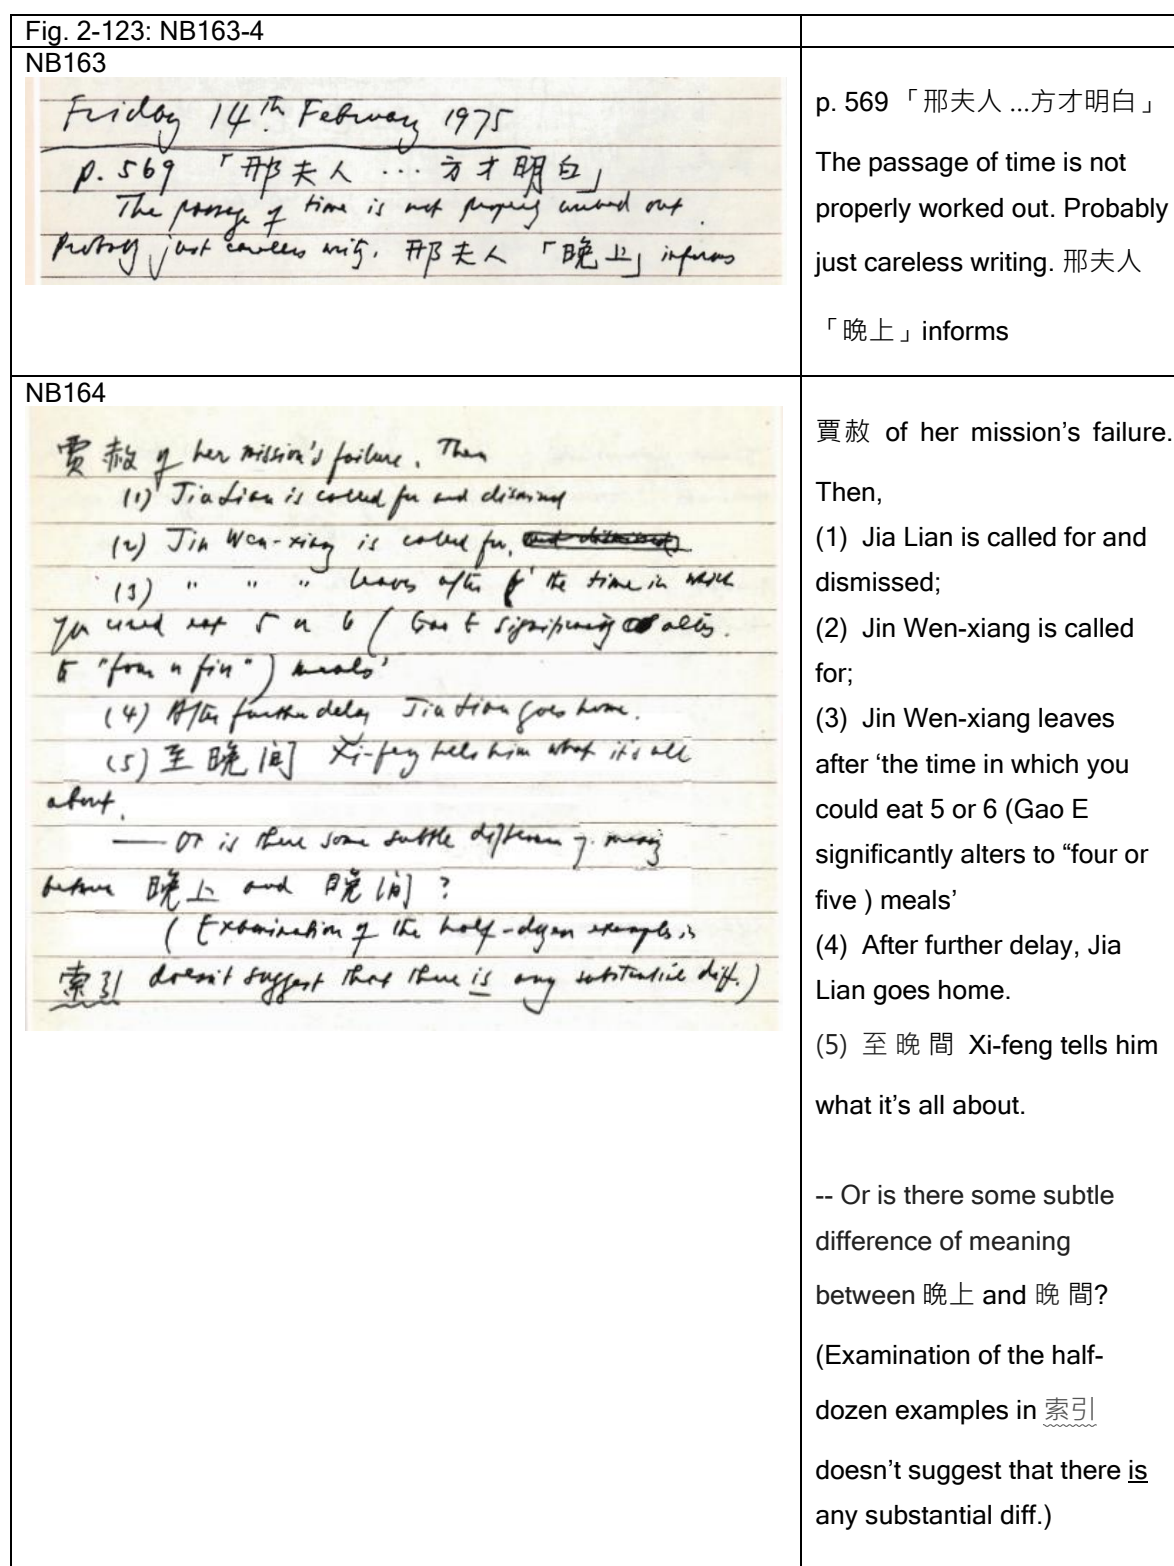 Fig. 2-123: NB163-4
NB163
Friday 14th February 1975
p. 569 「邢夫人 ... 方才明白」
The passage of time is not properly worked out.
Probably just careless writing. 邢夫人 「晚上」 informs
p. 569 「邢夫人 ...方才明白」
The passage of time is not
properly worked out. Probably
just careless writing. 邢夫人
「晚上」informs
NB164
賈赦 of her mission's failure. Then
(1) Jia Lian is called for and dismissed
(2) Jin Wen-xing is called for, and dismissed
(3) " " " leaves after 'the time in which
you could eat 5 or 6 (Gao E significantly alters
to "four or five") meals'
(4) After further delay Jia Lian goes home.
(5) 至晚间 Xi-feng tells him what it's all
about.
— Or is there some subtle difference of meaning
between 晚上 and 晚间?
(Examination of the half-dozen examples in
索引 doesn't suggest that there is any substantial diff.)
賈赦 of her mission's failure.
Then,
(1) Jia Lian is called for and
dismissed;
(2) Jin Wen-xiang is called
for;
(3) Jin Wen-xiang leaves
after ‘the time in which you
could eat 5 or 6 (Gao E
significantly alters to “four or
five ) meals’
(4) After further delay, Jia
Lian goes home.
(5) 至 晚 間 Xi-feng tells him
what it’s all about.
-- Or is there some subtle
difference of meaning
between 晚上 and 晚 間?
(Examination of the half-
dozen examples in 索引
doesn’t suggest that there is
any substantial diff.)